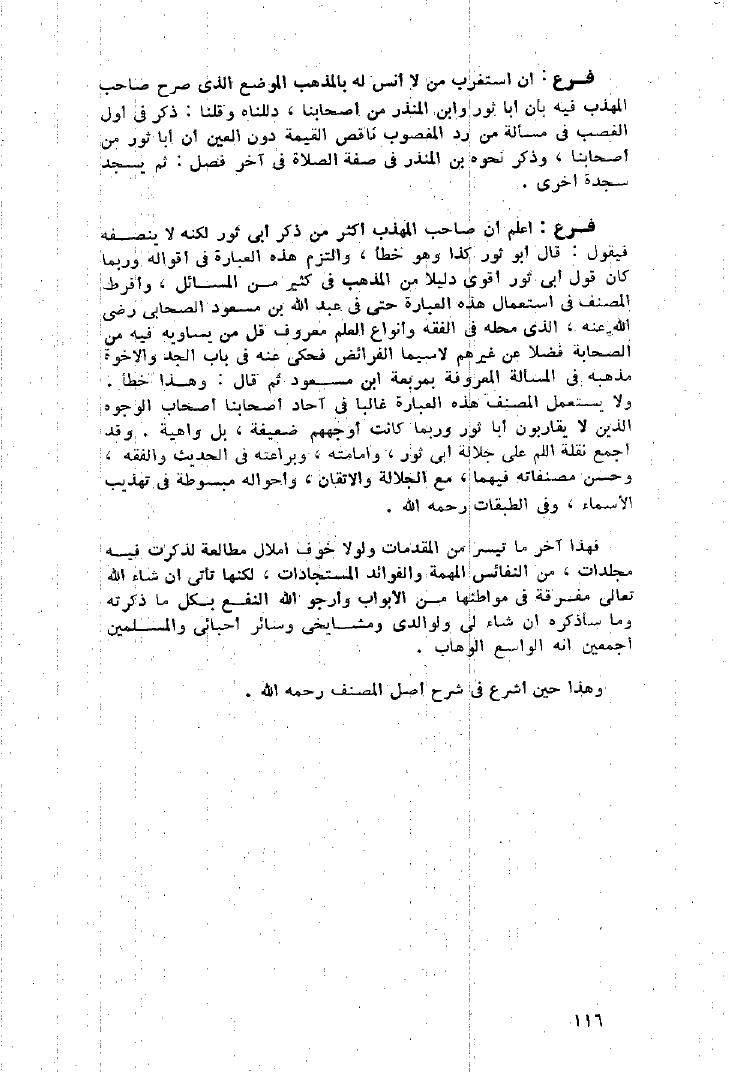 فــرع : ان استغرب من لا أنس له بالمذهب الموضع الذى صرح صاحب
المهذب فيه بأن أبا ثور وابن المنذر من أصحابنا ، دللناه وقلنا : ذكر فى أول
الغصب فى مسألة من رد المغصوب ناقص القيمة دون العين أن أبا ثور من
أصحابنا ، وذكر نحوه بن المنذر فى صفة الصلاة فى آخر فصل : ثم يسجد
سجدة أخرى .
فــرع : اعلم أن صاحب المهذب أكثر من ذكر أبى ثور لكنه لا ينصفه
فيقول : قال أبو ثور كذا وهو خطأ ، والتزم هذه العبارة فى أقواله وربما
كان قول أبى ثور أقوى دليلا من المذهب فى كثير من المسائل ، وأفرط
المصنف فى استعمال هذه العبارة حتى فى عبد الله بن مسعود الصحابى رضى
الله عنه ، الذى محله فى الفقه وأنواع العلم معروف قل من يساويه فيه من
الصحابة فضلا عن غيرهم لاسيما الفرائض فحكى عنه فى باب الجد والاخوة
مذهبه فى المسألة المعروفة بمربعة ابن مسعود ثم قال : وهذا خطأ .
ولا يستعمل المصنف هذه العبارة غالبا فى آحاد أصحابنا أصحاب الوجوه
الذين لا يقاربون أبا ثور وربما كانت أوجههم ضعيفة ، بل واهية . وقد
أجمع نقلة اللم على جلالة أبى ثور ، وامامته ، وبراعته فى الحديث والفقه ،
وحسن مصنفاته فيهما ، مع الجلالة والاتقان ، وأحواله مبسوطة فى تهذيب
الأسماء ، وفى الطبقات رحمه الله .
فهذا آخر ما تيسر من المقدمات ولولا خوف املال مطالعة لذكرت فيه
مجلدات ، من النفائس المهمة والفوائد المستجادات ، لكنها تأتى ان شاء الله
تعالى مفرقة فى مواطنها من الأبواب وأرجو الله النفع بكل ما ذكرته
وما سأذكره ان شاء لى ولوالدى ومشايخى وسائر أحبائى والمسلمين
أجمعين انه الواسع الوهاب .
وهذا حين أشرع فى شرح أصل المصنف رحمه الله .
١١٦